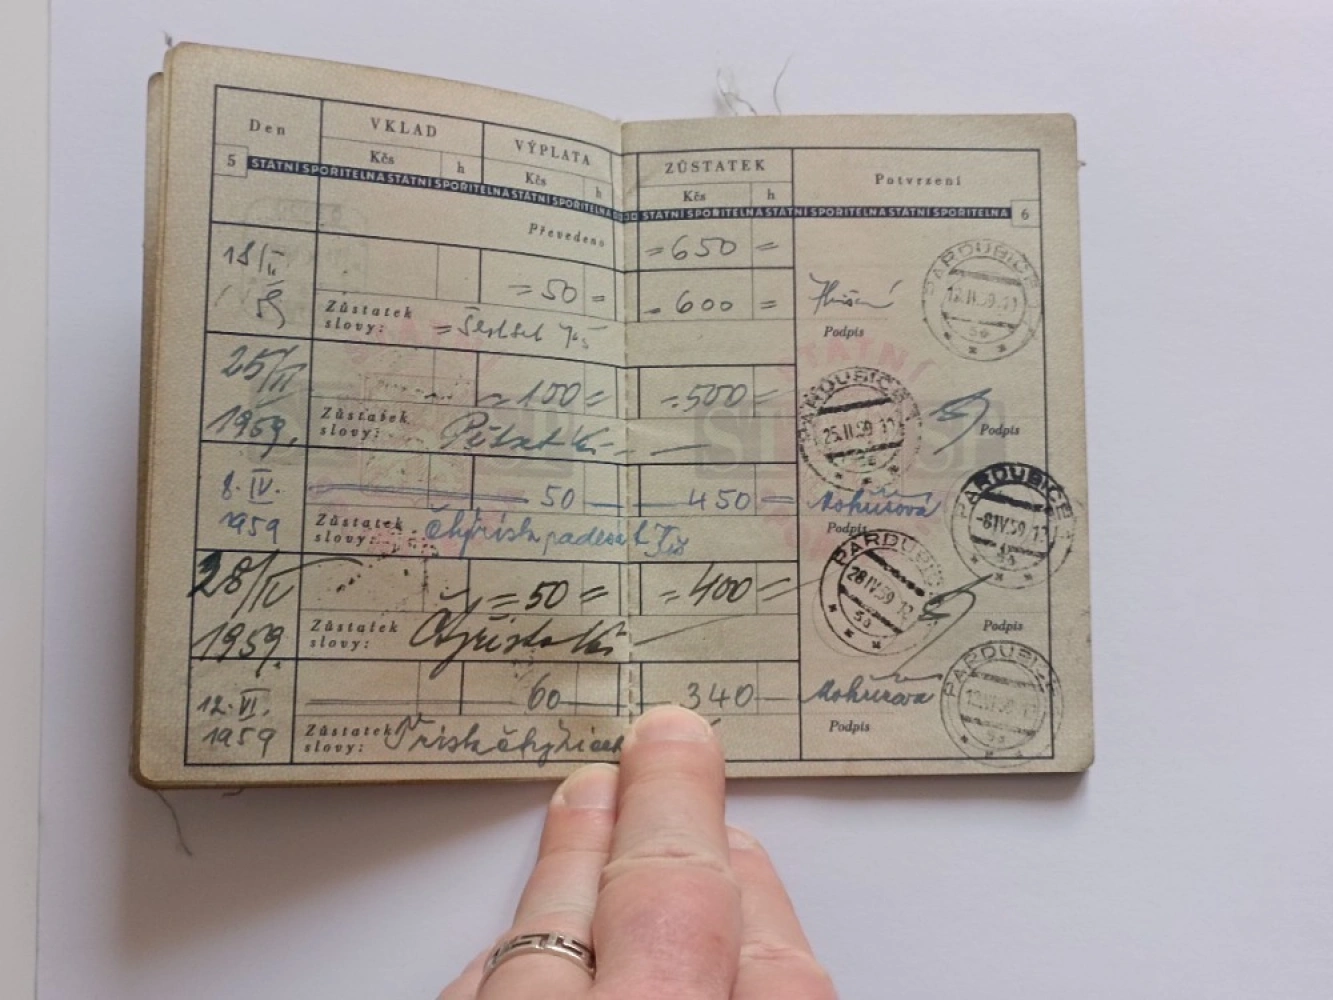 Den VKLAD VÝPLATA ZŮSTATEK Potvrzení
Kčs h Kčs h Kčs h
5 STÁTNÍ SPOŘITELNA STÁTNÍ SPOŘITELNA STÁTNÍ SPOŘITELNA STÁTNÍ SPOŘITELNA STÁTNÍ SPOŘITELNA STÁTNÍ SPOŘITELNA 6
Převedeno = 650 =
= 50 = = 600 =
Zůstatek
slovy: = Šestset Kčs
Podpis
PARDUBICE
12.II.59
25/II = 100 = = 500 =
1959. Zůstatek
slovy: Pětset Kčs
Podpis
PARDUBICE
25.II.59
8. IV. 50 450 =
1959 Zůstatek
slovy: Čtyřista padesát Kčs
Podpis
PARDUBICE
-8.IV.59
28/IV = 50 = = 400 =
1959. Zůstatek
slovy: Čtyřista Kčs
Podpis
PARDUBICE
28.IV.59
12. VI. 60 340
1959 Zůstatek
slovy: Třista čtyřicet
Podpis
PARDUBICE
12.VI.59